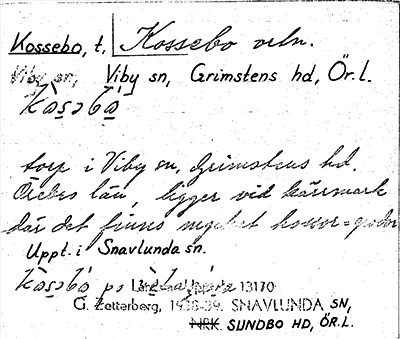 Kossebo, t, Kossebo veln.
Viby sn, Viby sn, Grimstens hd, Ör. l.
kå̀sɔbó
torp i Viby sn, Grimstens hd.
Örebro län, ligger vid kärrmark
där det finns mycket kossor =
Uppt. i Snavlunda sn.
kå̀sɔbó 13170
G. Zetterberg, 1938-39. SNAVLUNDA SN,
NRK. SUNDBO HD, ÖR. L.